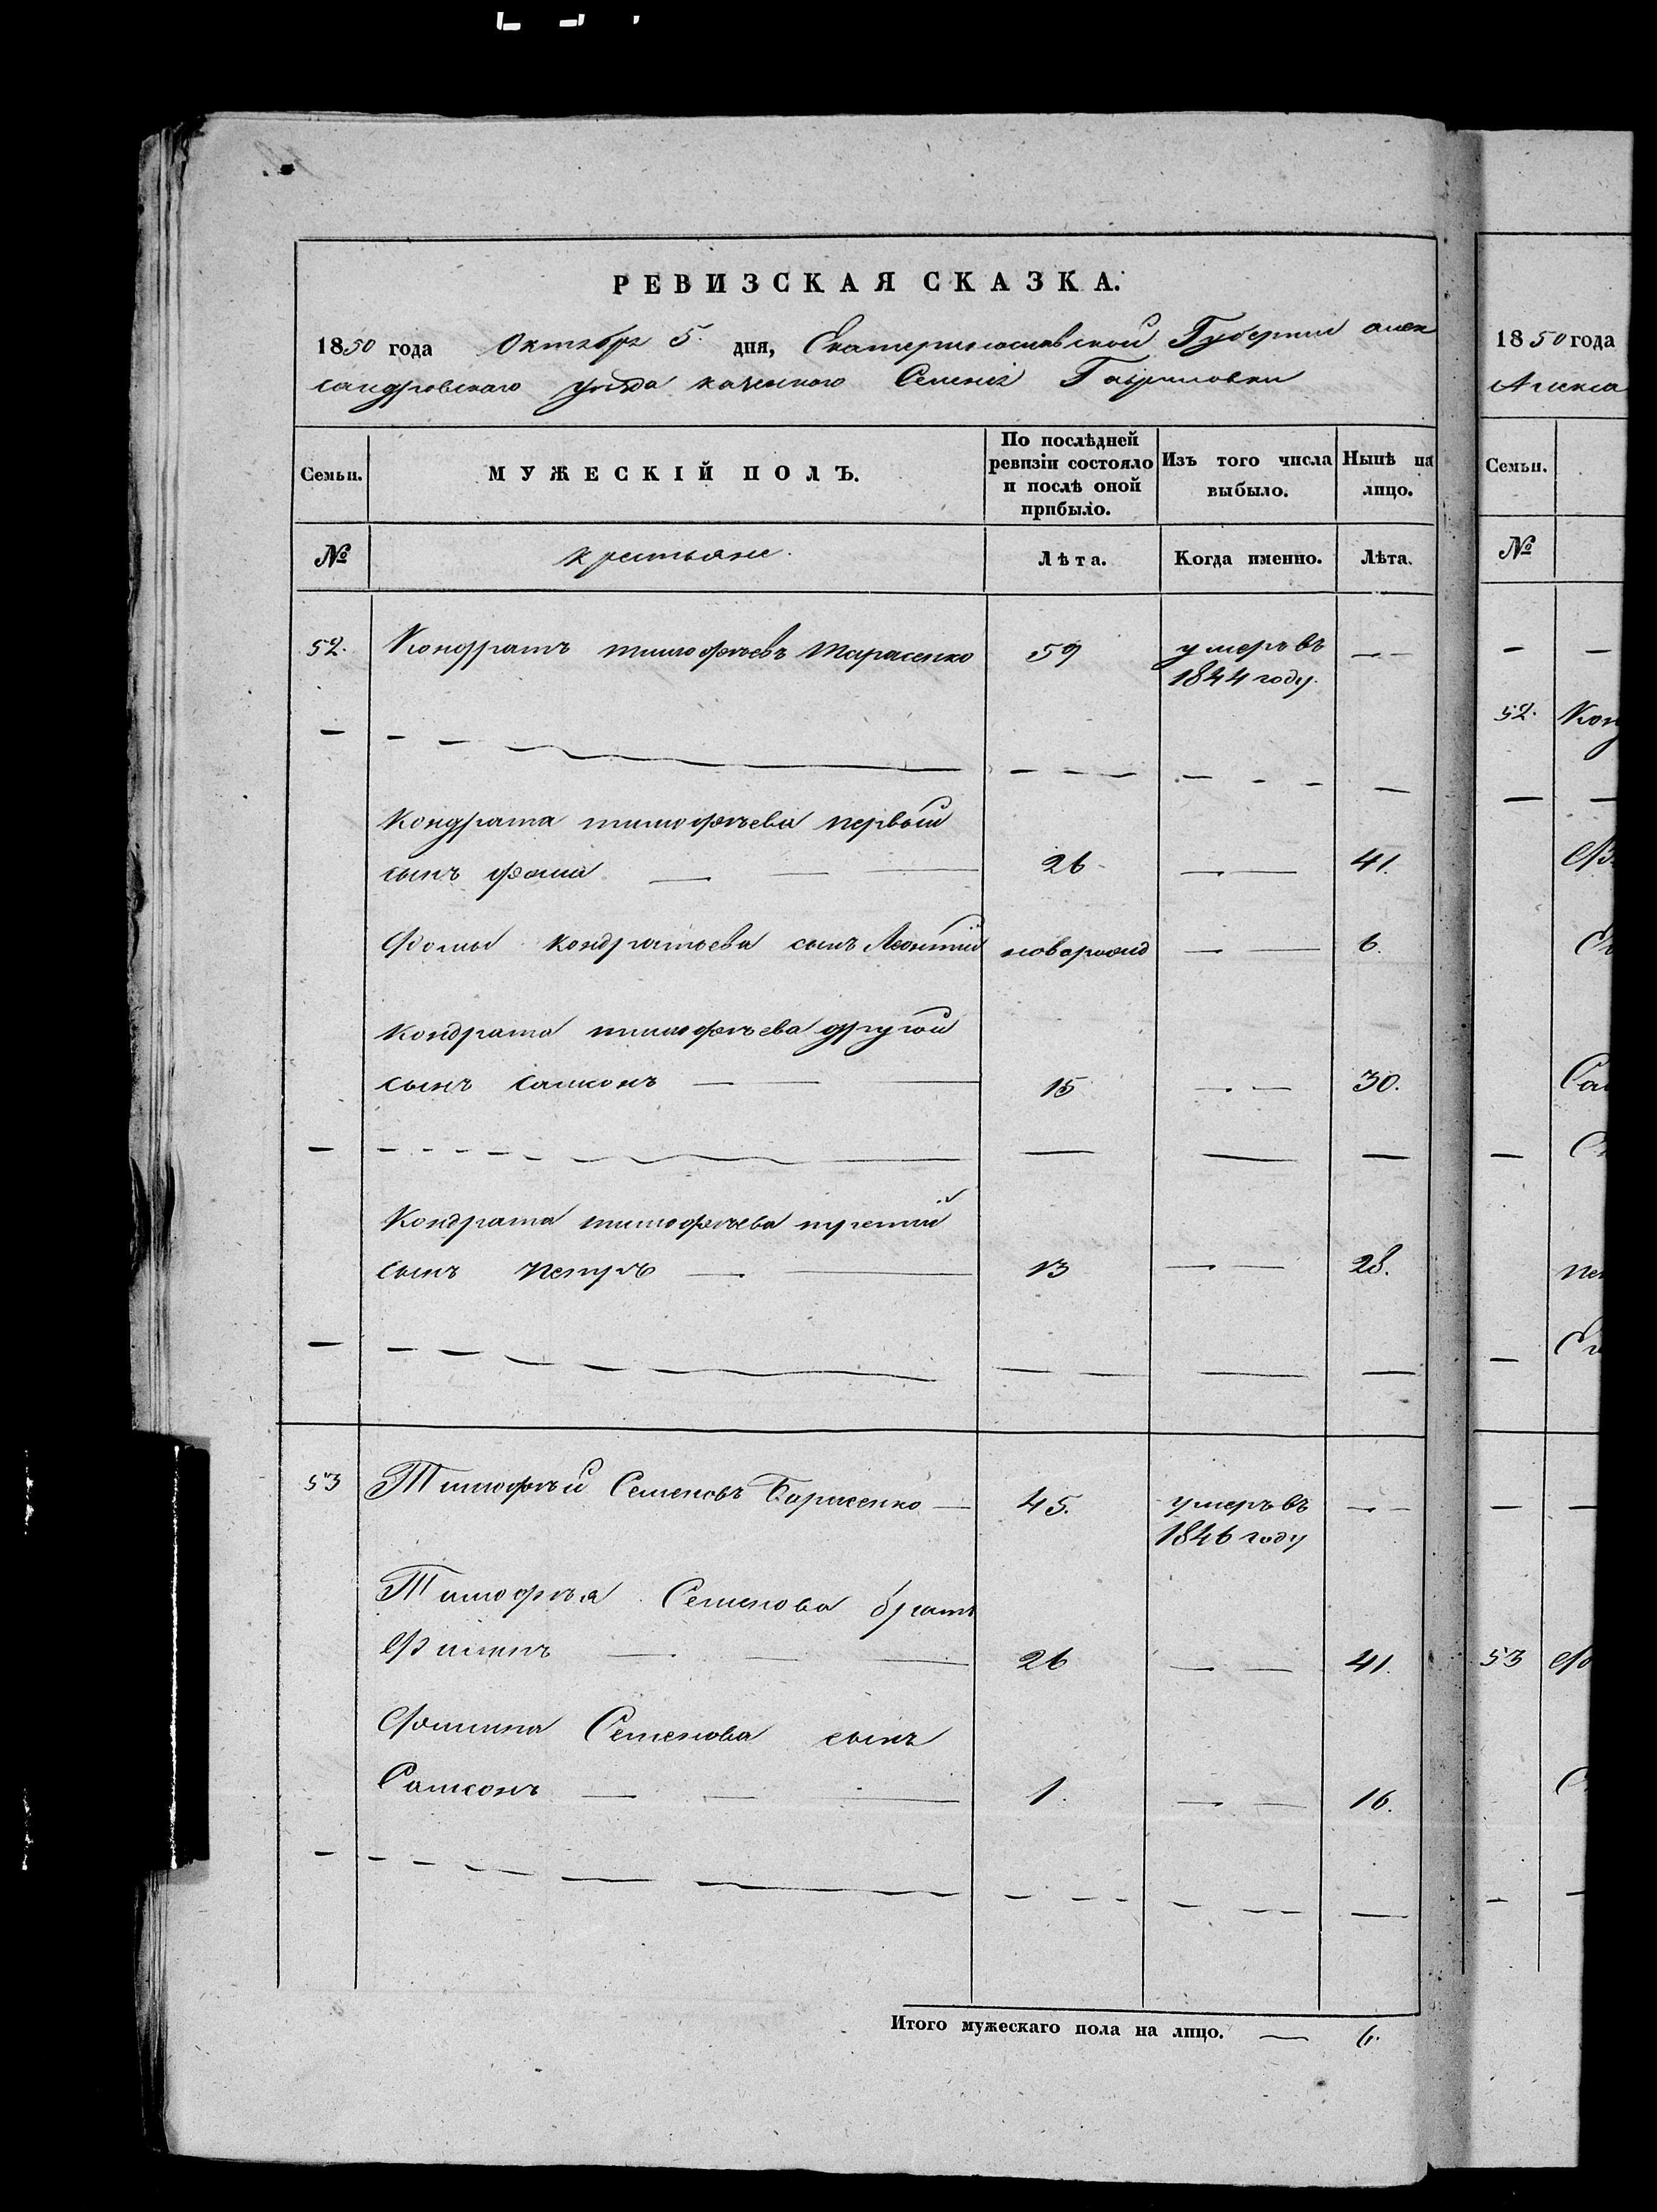 РЕВИЗСКАЯ СКАЗКА.
1850 года Октября 5. дня, Екатеринославской Губернии алек
сандровскаго уезда казенного Селения Гавриловки
Семьи. МУЖЕСКІЙ ПОЛЪ. По послѣдней ревизіи состояло и послѣ оной прибыло. Изъ того числа выбыло. Нынѣ на лицо.
№ крестьяне. Лѣта. Когда именно. Лѣта.
52. Кондратъ тимофѣевъ Тарасенко 59 умеръ въ — —
1844 году.
Кондрата тимофѣева первый
сынъ фома — — — 26 — — 41.
Фомы кондратьева сынъ Леонтий новорожд — — 6.
Кондрата тимофѣева другой
сынъ самсонъ — — — 15 — — 30.
Кондрата тимофѣева третий
сынъ петръ — — 13 — — 28.
53 Тимофѣй Семеновъ Борисенко — 45. умеръ въ — —
1846 году
Тимофѣя Семенова братъ
— — — 26 — — 41.
Семенова сынъ
Самсонъ — — — 1. — — 16.
Итого мужескаго пола на лицо. — 6.
1850 года
Алекса
Семьи.
№
52. Кон
Са
пе
53